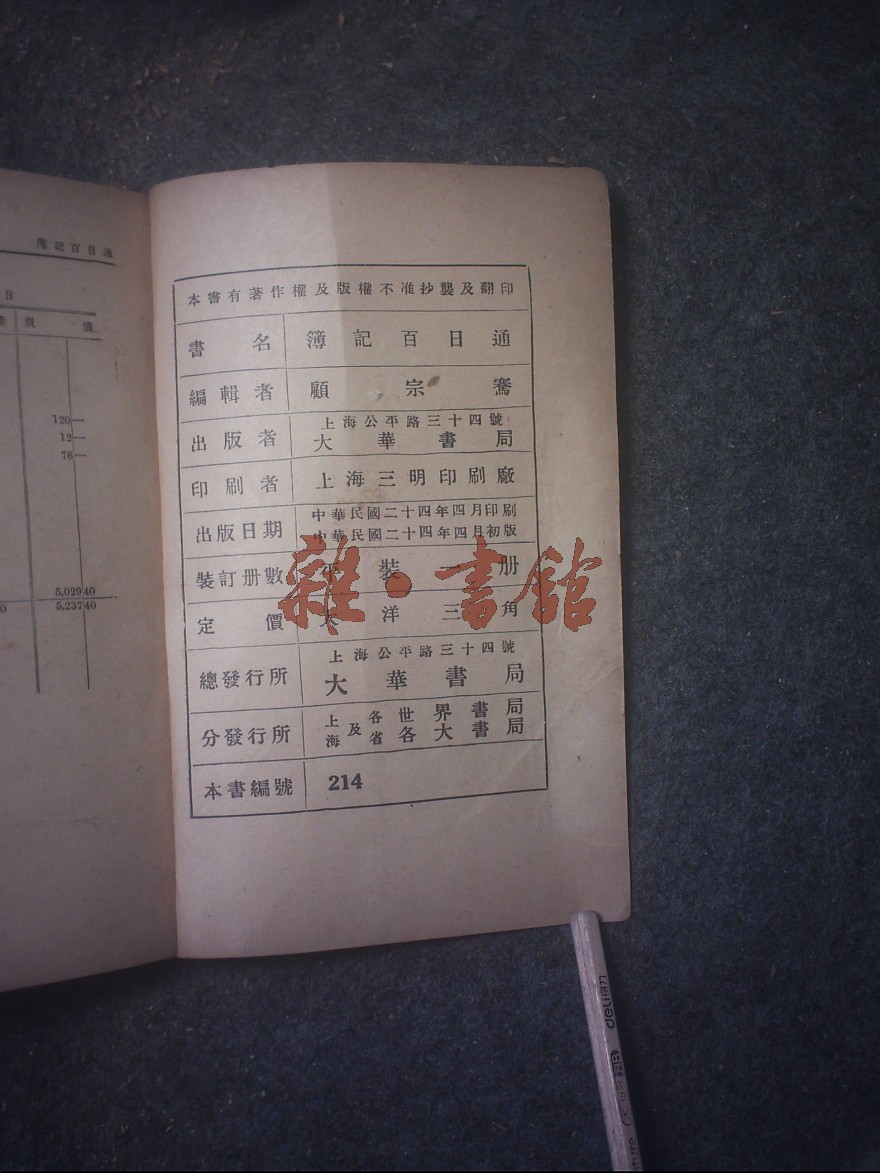 簿記百日通
日
價
120—
12—
76—
5,029 40
5,237 40
本書有著作權及版權不准抄襲及翻印
書名 簿記百日通
編輯者 顧宗騫
出版者 上海公平路三十四號
大華書局
印刷者 上海三明印刷廠
出版日期 中華民國二十四年四月印刷
中華民國二十四年四月初版
裝訂册數 平裝一册
定價 大洋三角
總發行所 上海公平路三十四號
大華書局
分發行所 上海及各省世界書局各大書局
本書編號 214
雜·書館
deli得力